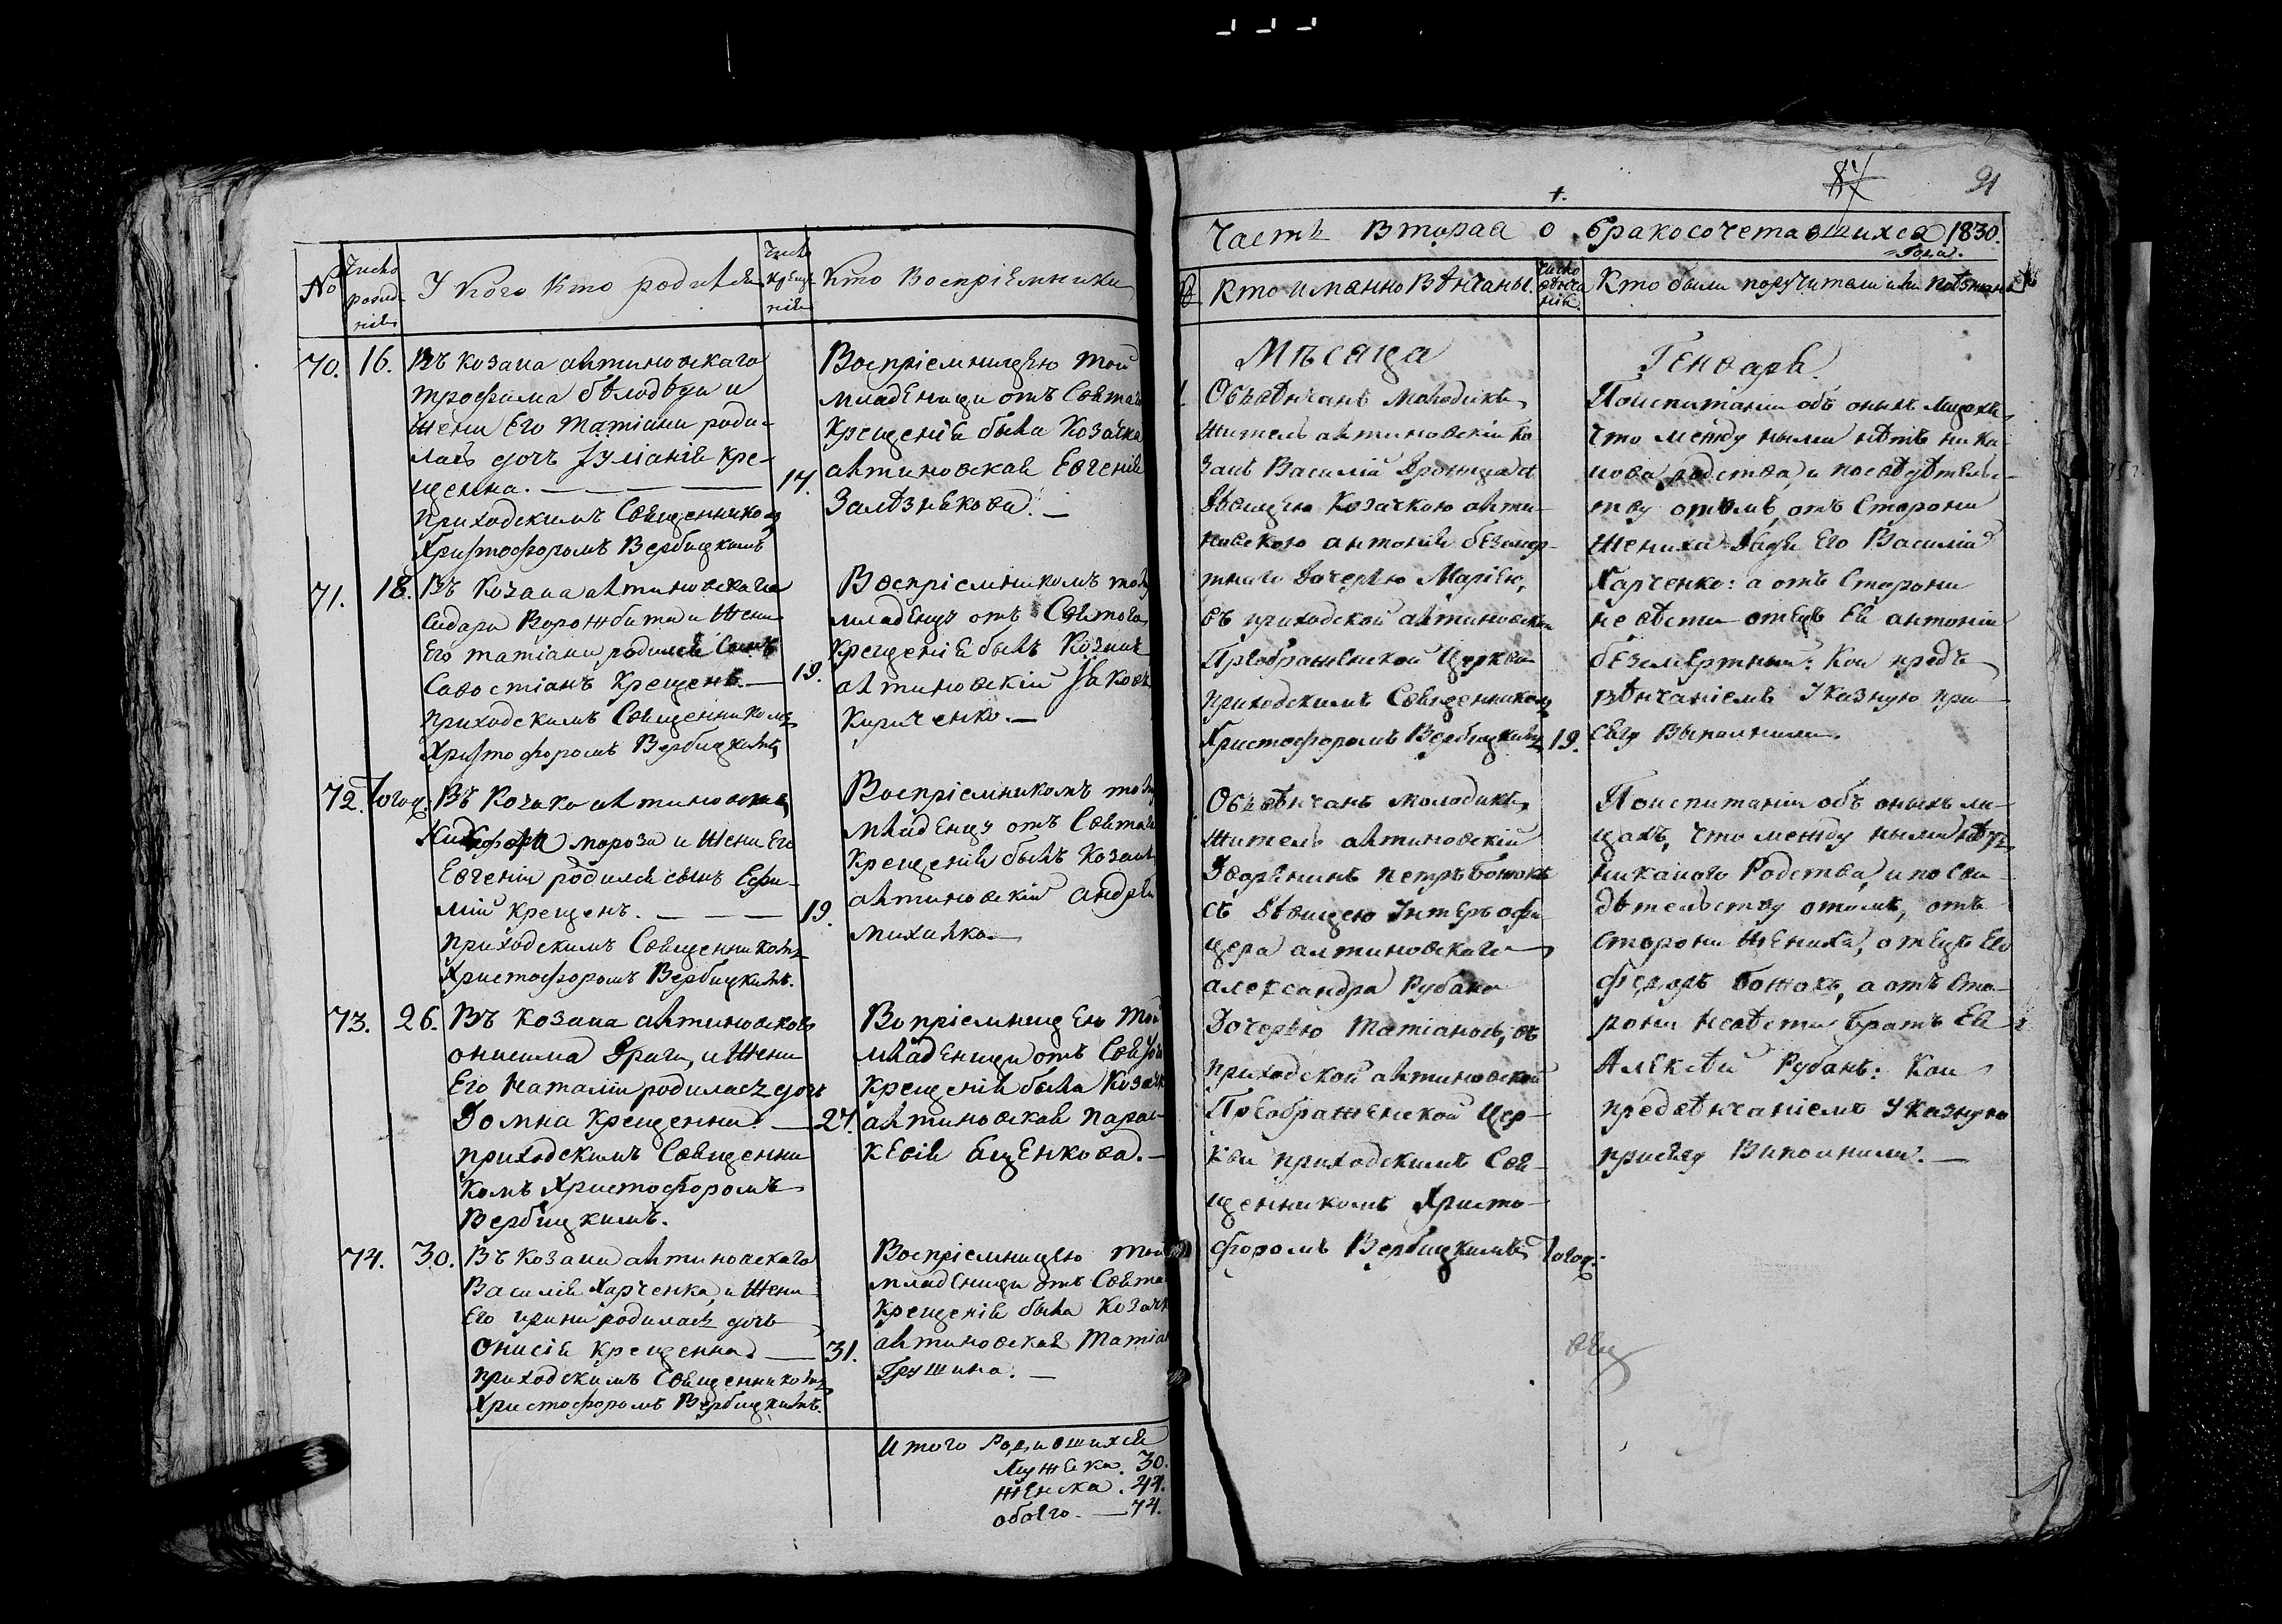 №
Число рожде-
нія
У кого кто родился
Число
креще-
нія
Кто Воспріемники
70. 16. Въ козака алтиновскаго
трофима бѣлодѣда и
жени Его татіани роди-
лась дочь Iуліанія кре-
щенна. — — — 17.
приходскимъ Священникомъ
Христофоромъ Вербицкимъ
Воспріемницею той
младеници отъ Святаго
Крещенія была Козачка
алтиновская Евгенія
Залѣзнякова. —
71. 18. Въ Козака алтиновскаго
Сидора Ворожбита и жени
Его татіани родился Синъ
Савостіанъ Крещенъ. — 19.
приходскимъ Священникомъ
Христофоромъ Вербицкимъ
Воспріемникомъ тому
младенцу отъ Святого
Крещенія былъ Козакъ
алтиновскій Яковъ
Кириченко. —
72. Тогож. Въ Козака алтиновскаго
мороза и жени Его
Евгеніи родился сынъ Ефи-
мій крещенъ. — — — 19.
приходскимъ Священникомъ
Христофоромъ Вербицкимъ.
Воспріемникомъ тому
младенцу отъ Святаго
Крещенія былъ Козакъ
алтиновскій андрей
михалко. —
73. 26. Въ козака алтиновского
онисима Драги, и жени
Его Наталіи родилась дочь
Домна Крещенна. — 27.
приходскимъ Священни-
комъ Христофоромъ
Вербицкимъ.
Вопріемницею той
младеници отъ Святого
крещенія была Козачка
алтиновская парас-
кевія Ященкова. —
74. 30. Въ козака алтиновскаго
Василія Харченка, и жени
Его ирини родилась дочь
Онисія Крещенна. — 31.
приходскимъ Священникомъ
Христофоромъ Вербицкимъ.
Воспріемницею той
младеници отъ Святаго
крещенія была Козачка
алтиновская Татіана
Грушина. —
Итого Родившихся
Мужска. 30.
женска. 44.
обоего. — 74.
1.
87
91
Часть Вторая о бракосочетавшихся 1830.
Года.
Кто именно Вѣнчаны.
Число
вѣнча
нія.
Кто были поручители или поѣзжане
Мѣсяца
Генваря.
1. Обвѣнчанъ молодикъ
житель алтиновскій ко-
закъ Василій Дроница съ
дѣвицею Козачкою алти-
новскою антонія безмер-
тнаго дочерью Маріею,
въ приходской алтиновской
Преображенской Церкви
приходскимъ Священникомъ
Христофоромъ Вербицкимъ 19.
Поиспитаніи объ онихъ лицахъ
что между ными нѣтъ ника-
кова родства, и посвѣдѣтельс-
тву отомъ, отъ Сторони
жениха дядя Его Василій
Харченко: а отъ Сторони
невѣсти отецъ Ея антоній
безмертный: Кои предъ
вѣнчаніемъ Указную при-
сягу Выполнили.
Обвѣнчанъ молодикъ,
житель алтиновскій
Дворянинъ петръ Божокъ
съ дѣвицею Унтеръ офи-
цера алтиновскаго
александра Рубана
Дочерью Татіаною, въ
приходской алтиновской
Преображенской Цер-
кви приходскимъ Свя-
щенникомъ Христо-
форомъ Вербицкимъ Тогож.
Поиспитаніи объ онихъ ли-
цахъ, что между ными нѣтъ
никакого Родства, и по сви-
дѣтельству отомъ, отъ
сторони жениха, отецъ Его
федоръ Божокъ, а отъ Сто-
рони невѣсти братъ Ея
Алексѣй Рубанъ: Кои
предвѣнчаніемъ Указную
присягу Виполнили. —